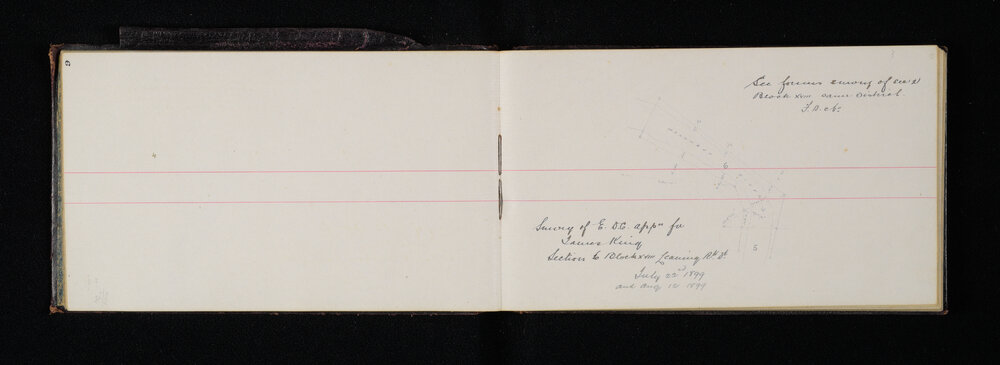 9
4
See former survey of sec 2
Block XVIII same District.
6
5
Survey of E. O. C. appn for
James King
Section 6 Block XVIII Leaning Rk Dt
July 22d 1899
and Aug 12 1899